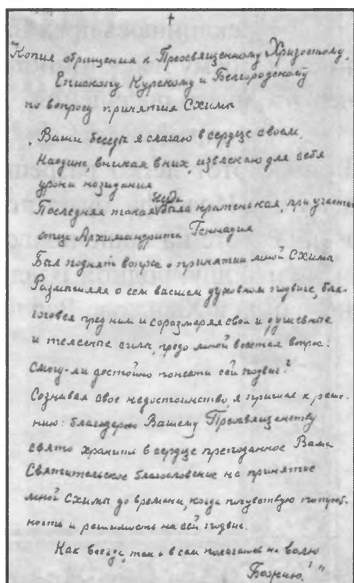 †
"Копия обращения к Преосвященному Хризостому,
Епископу Курскому и Белгородскому
по вопросу принятия Схимы
"Ваши беседы я слагаю в сердце своем.
Наедине вникая в них, извлекаю для себя
уроки назидания
Последняя такая беседа была кратенькая, при участии
отца Архимандрита Геннадия
Был поднят вопрос о принятии мной Схимы
Размышляя о сем высшем духовном подвиге, бла-
гоговея пред ним и соразмеряя свои и душевные
и телесные силы, предо мной восстал вопрос:
Смогу-ли достойно понести сей подвиг?
Сознавая свое недостоинство, я пришел к реше-
нию: благодарю Вашему Преосвященству
свято хранить в сердце преподанное Вами
Святительское благословение на принятие
мной Схимы до времени, когда почувствую потреб-
ность и решимость на сей подвиг.
Как всегда, так и в сем полагаюсь на волю
Божию."